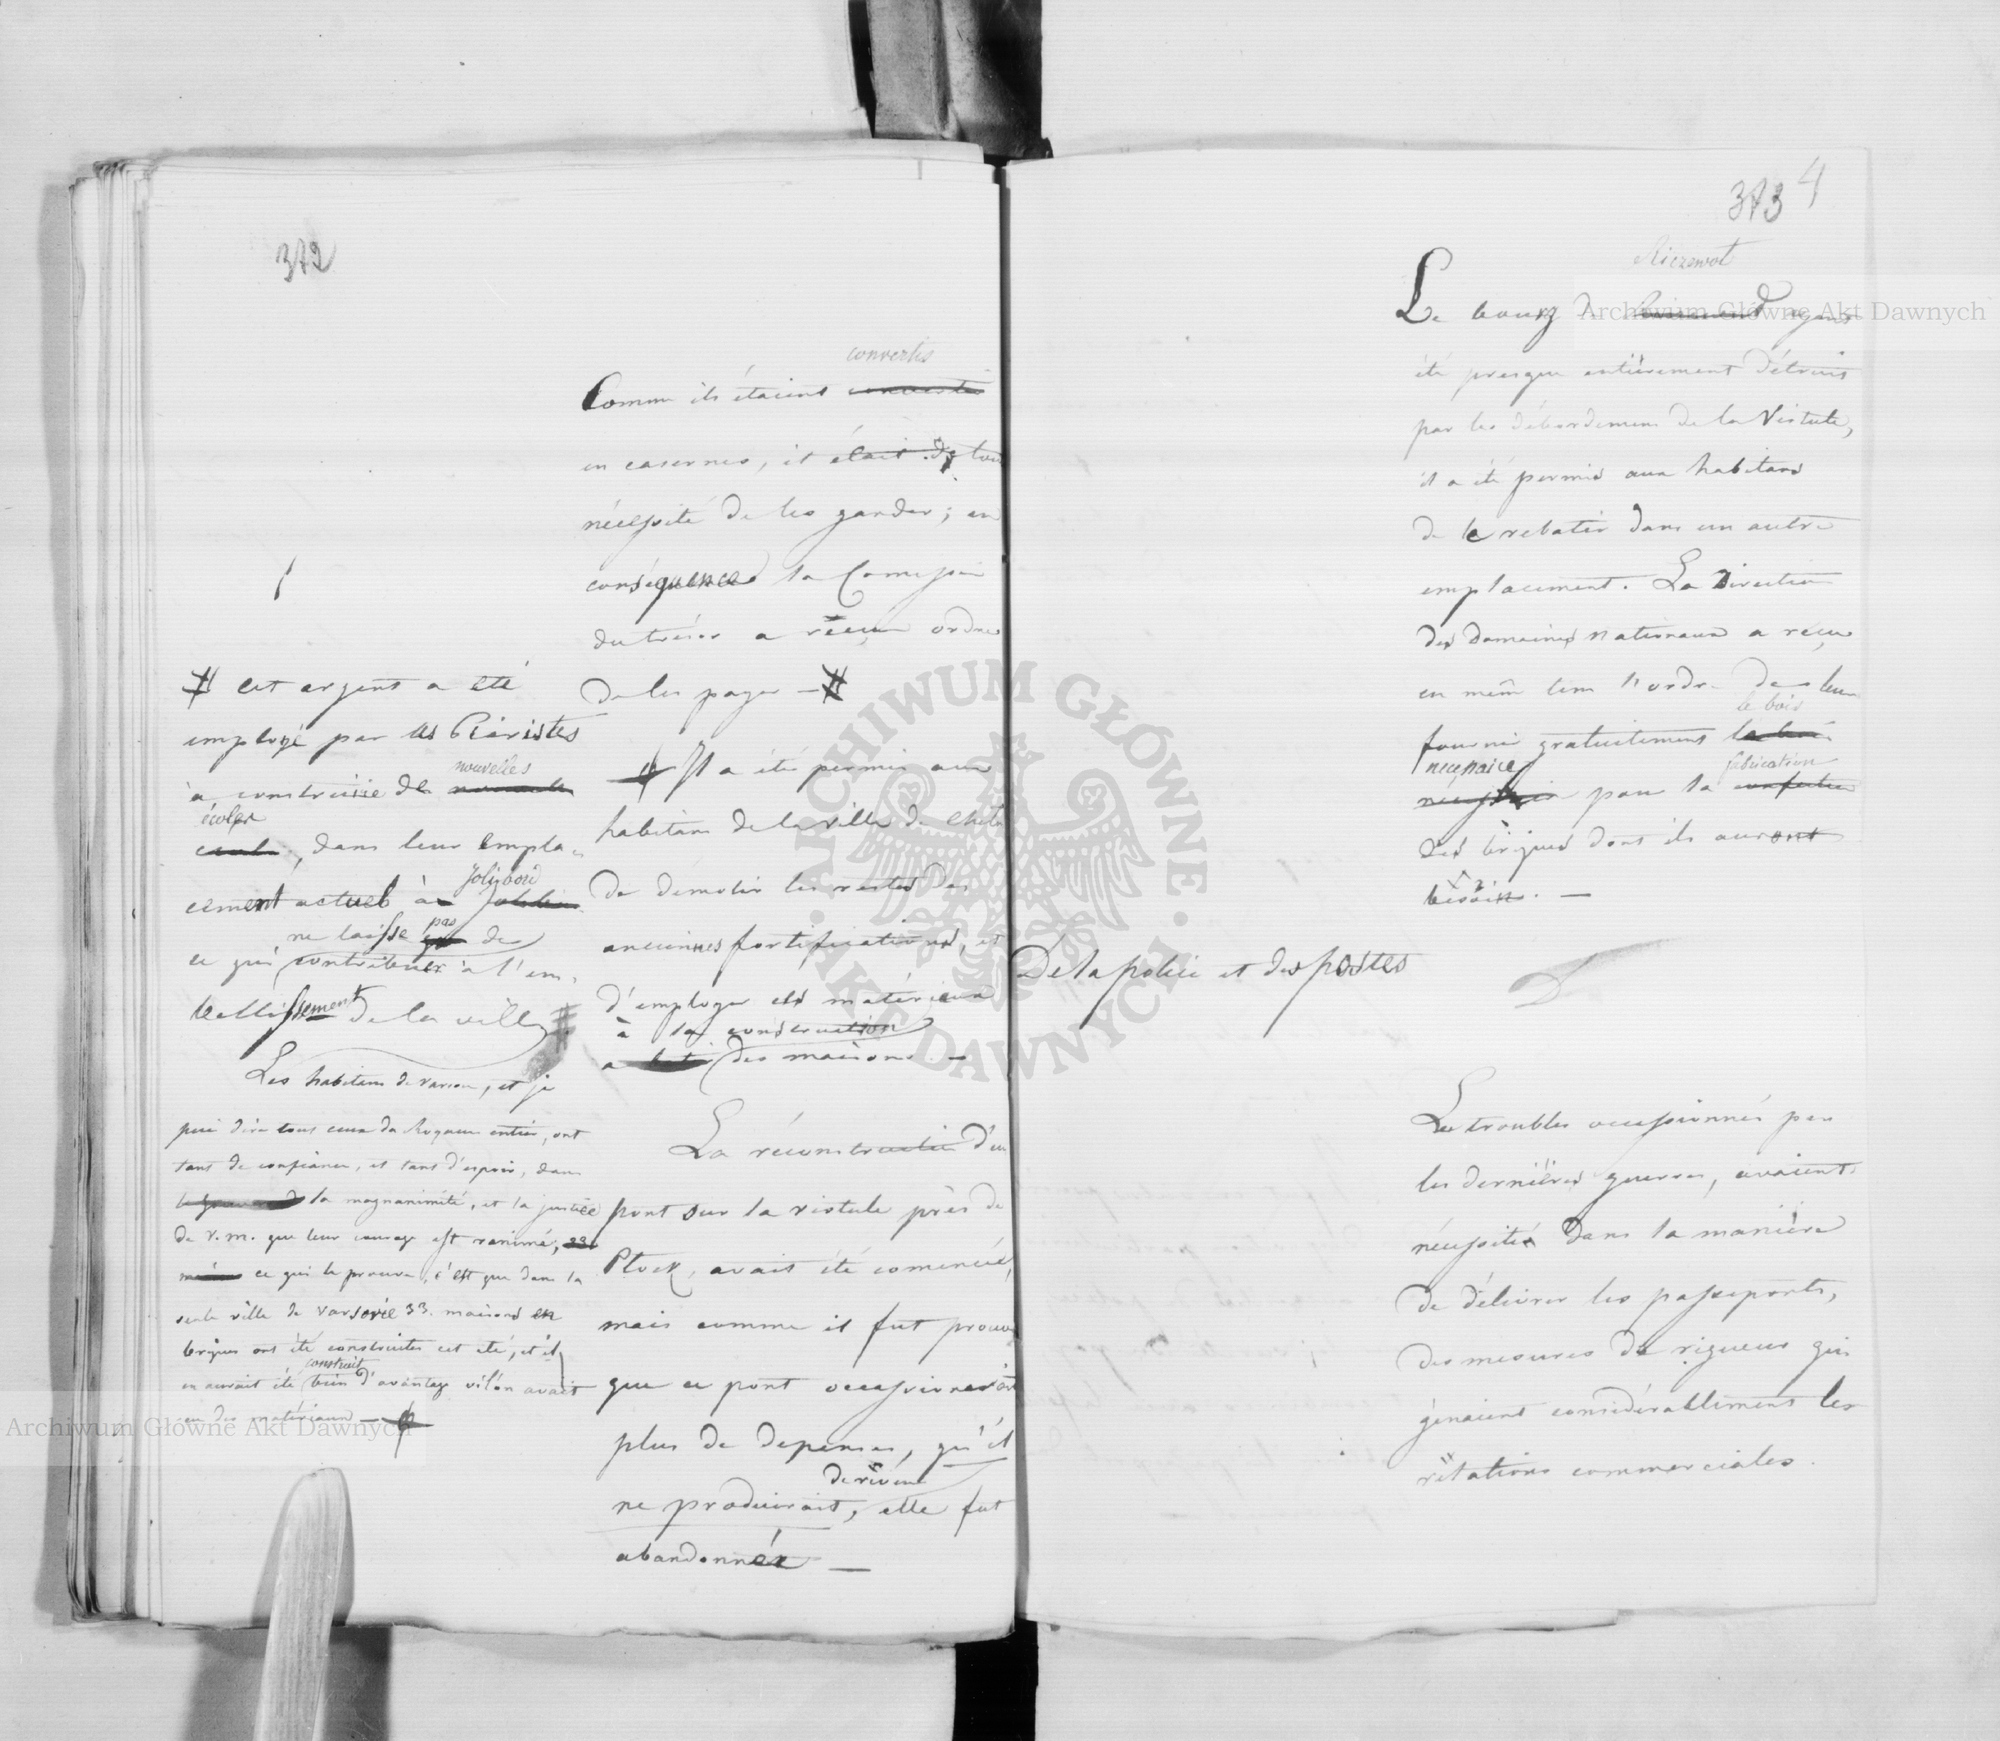 372
convertis
Comme ils étaient convertis
en casernes, il était de toute
nécessité de les garder; en
conséquence la Comission
du trésor a réçu ordre
de les payer —#
Il a été permis aux
habitans de la ville de
de démolir les restes des
anciennes fortifications, et
d'employer les matériaux
à la construction
a batir des maisons —
La réconstruction d'un
pont sur la vistule près de
Plock, avait été comencée,
mais comme il fut prouvé
que ce pont occasionnerait
plus de depenses, qu'il
de révénu
ne produirait, elle fut
abandonnée —
# cet argent a été
employé par les Piaristes
nouvelles
à construire de nouvelle
écoles
, dans leur empla-
Jolibord
cement actuel à
ne laisse pas de
ce qui contribuer à l'em-
bellissement de la ville #
Les habitans de varsovie, et je
puis dire tous ceux du Royaume entier, ont
tant de confiance, et tant d'espoir, dans
la magnanimité, et la justice
de V. M. que leur courage est ranimé, 33
ce qui le prouve, c'est que dans la
seule ville de varsovie 33. maisons en
briques ont été construites cet été, et il
construit
en aurait été bien d'avantage si l'on avait
eu des matériaux —
373 4
Ryczewol
Le bourg de ayant
été presque entiérement détruit
par les débordemens de la Vistule,
il a été permis aux habitans
de le rebatir dans un autre
emplacement. La Direction
des Domaines Nationaux a réçu
en même tems l'ordre de leur
le bois
fournir gratuitement le bois
necessaire fabrication
nécessaire pour la confection
des briques dont ils auront
besoin. —
De la police et des postes
Les troubles occasionnés par
les dernières guerres, avaient
nécessité dans la manière
de délivrer les passeports,
des mesures de rigueur qui
génaient considérablement les
rélations commerciales.
Archiwum Główne Akt Dawnych
Archiwum Główne Akt Dawnych
ARCHIWUM GŁÓWNE · AKT DAWNYCH ·